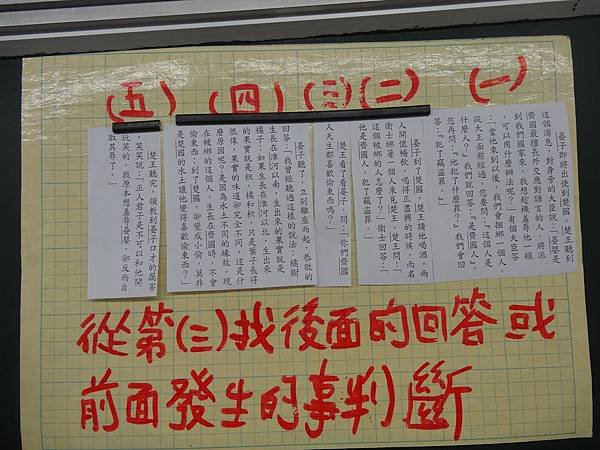 (一) (二) (三) (四) (五)
晏子即將出使到楚國。楚王聽到
這個消息,對身旁的大臣說:「晏嬰是
齊國最擅長外交應對語言的人,將派
到我們國家來,我想趁機羞辱他一頓
,可以用什麼辦法呢?」有個大臣答
:「當他來到以後,我們會捆綁一個人,
從大王面前經過。您要問:『這個人是
什麼人?』我們就回答:『是齊國人』。
您再問:『他犯了什麼罪?』我們會回
答:『犯了竊盜罪。』
晏子到了楚國,楚王請他喝酒。兩
人開懷暢飲,喝得正盡興的時候,兩名
衛士綁著一個人來見楚王。楚王問:「
這個被綁的人怎麼了?」衛士回答:「
他是齊國人,犯了竊盜罪。」
楚王看了看晏子,問:「你們齊國
人天生都喜歡偷東西嗎?」
晏子聽了,立刻離座而起,恭敬的
回答:「我曾經聽過這樣的說法:橘樹
生長在淮河以南,生出來的果實就是
橘子;如果生長在淮河以北,生出來
的果實就是枳。橘和枳,只是葉子長得
很像,果實的味道卻完全不同,這是什
麼原因呢?是因為水土不同的緣故。現
在被綁的這個人,生長在齊國時,不會
偷東西;到了楚國,卻變成小偷,莫非
是楚國的水土讓他變得喜歡偷東西?」
楚王聽完,領教到晏子口才的厲害
,笑笑說:「正人君子是不可以和他開
玩笑的,我原本想羞辱晏嬰,卻反而自
取其辱了!」
從第(三)找後面的回答或
前面發生的事判斷